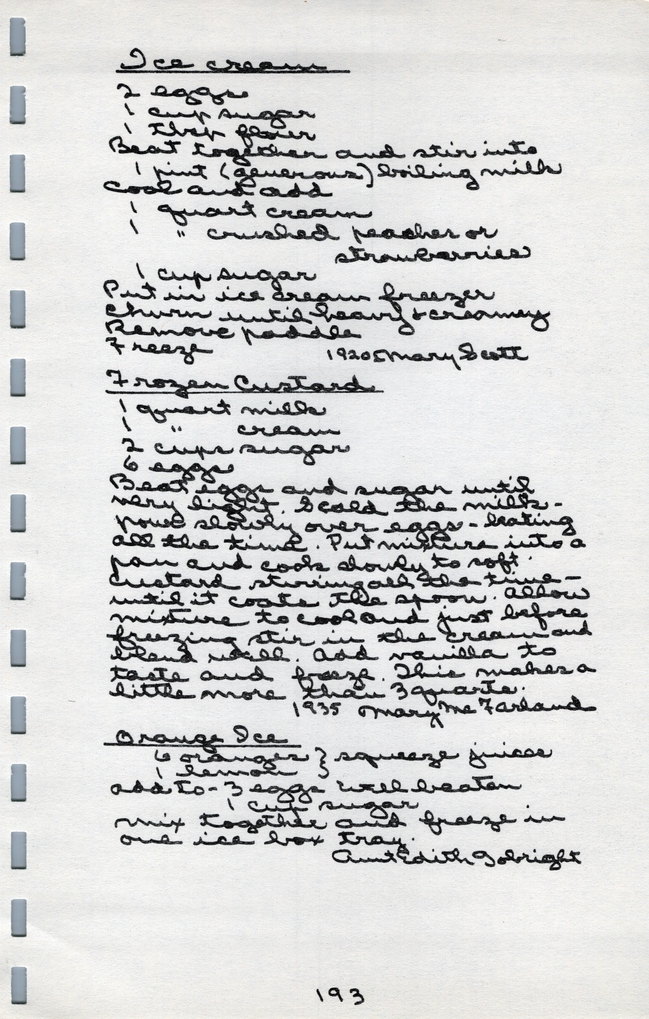 Ice cream
2 eggs
1 cup sugar
1 tbsp flour
Beat together and stir into
1 pint (generous) boiling milk
Cool and add
1 quart cream
1 " crushed peaches or
strawberries
1 cup sugar
Put in ice cream freezer
churn until heavy & creamey
Remove paddle
Freeze 1920s Mary Scott
Frozen Custard
1 quart milk
1 " cream
2 cups sugar
6 eggs
Beat eggs and sugar until
very light. Scald the milk -
pour slowly over eggs - beating
all the time. Put mixture into a
pan and cook slowly to soft
custard stiring all the time -
until it coats the spoon. Allow
mixture to cool and just before
freezing stir in the cream and
blend well. Add vanilla to
taste and freeze. This makes a
little more than 3 quarts.
1935 Mary McFarland
Orange Ice
6 oranges } squeeze juices
1 lemon }
add to - 3 eggs well beaten
1 cup sugar
mix together and freeze in
one ice box tray.
Aunt Edith Gobright
193